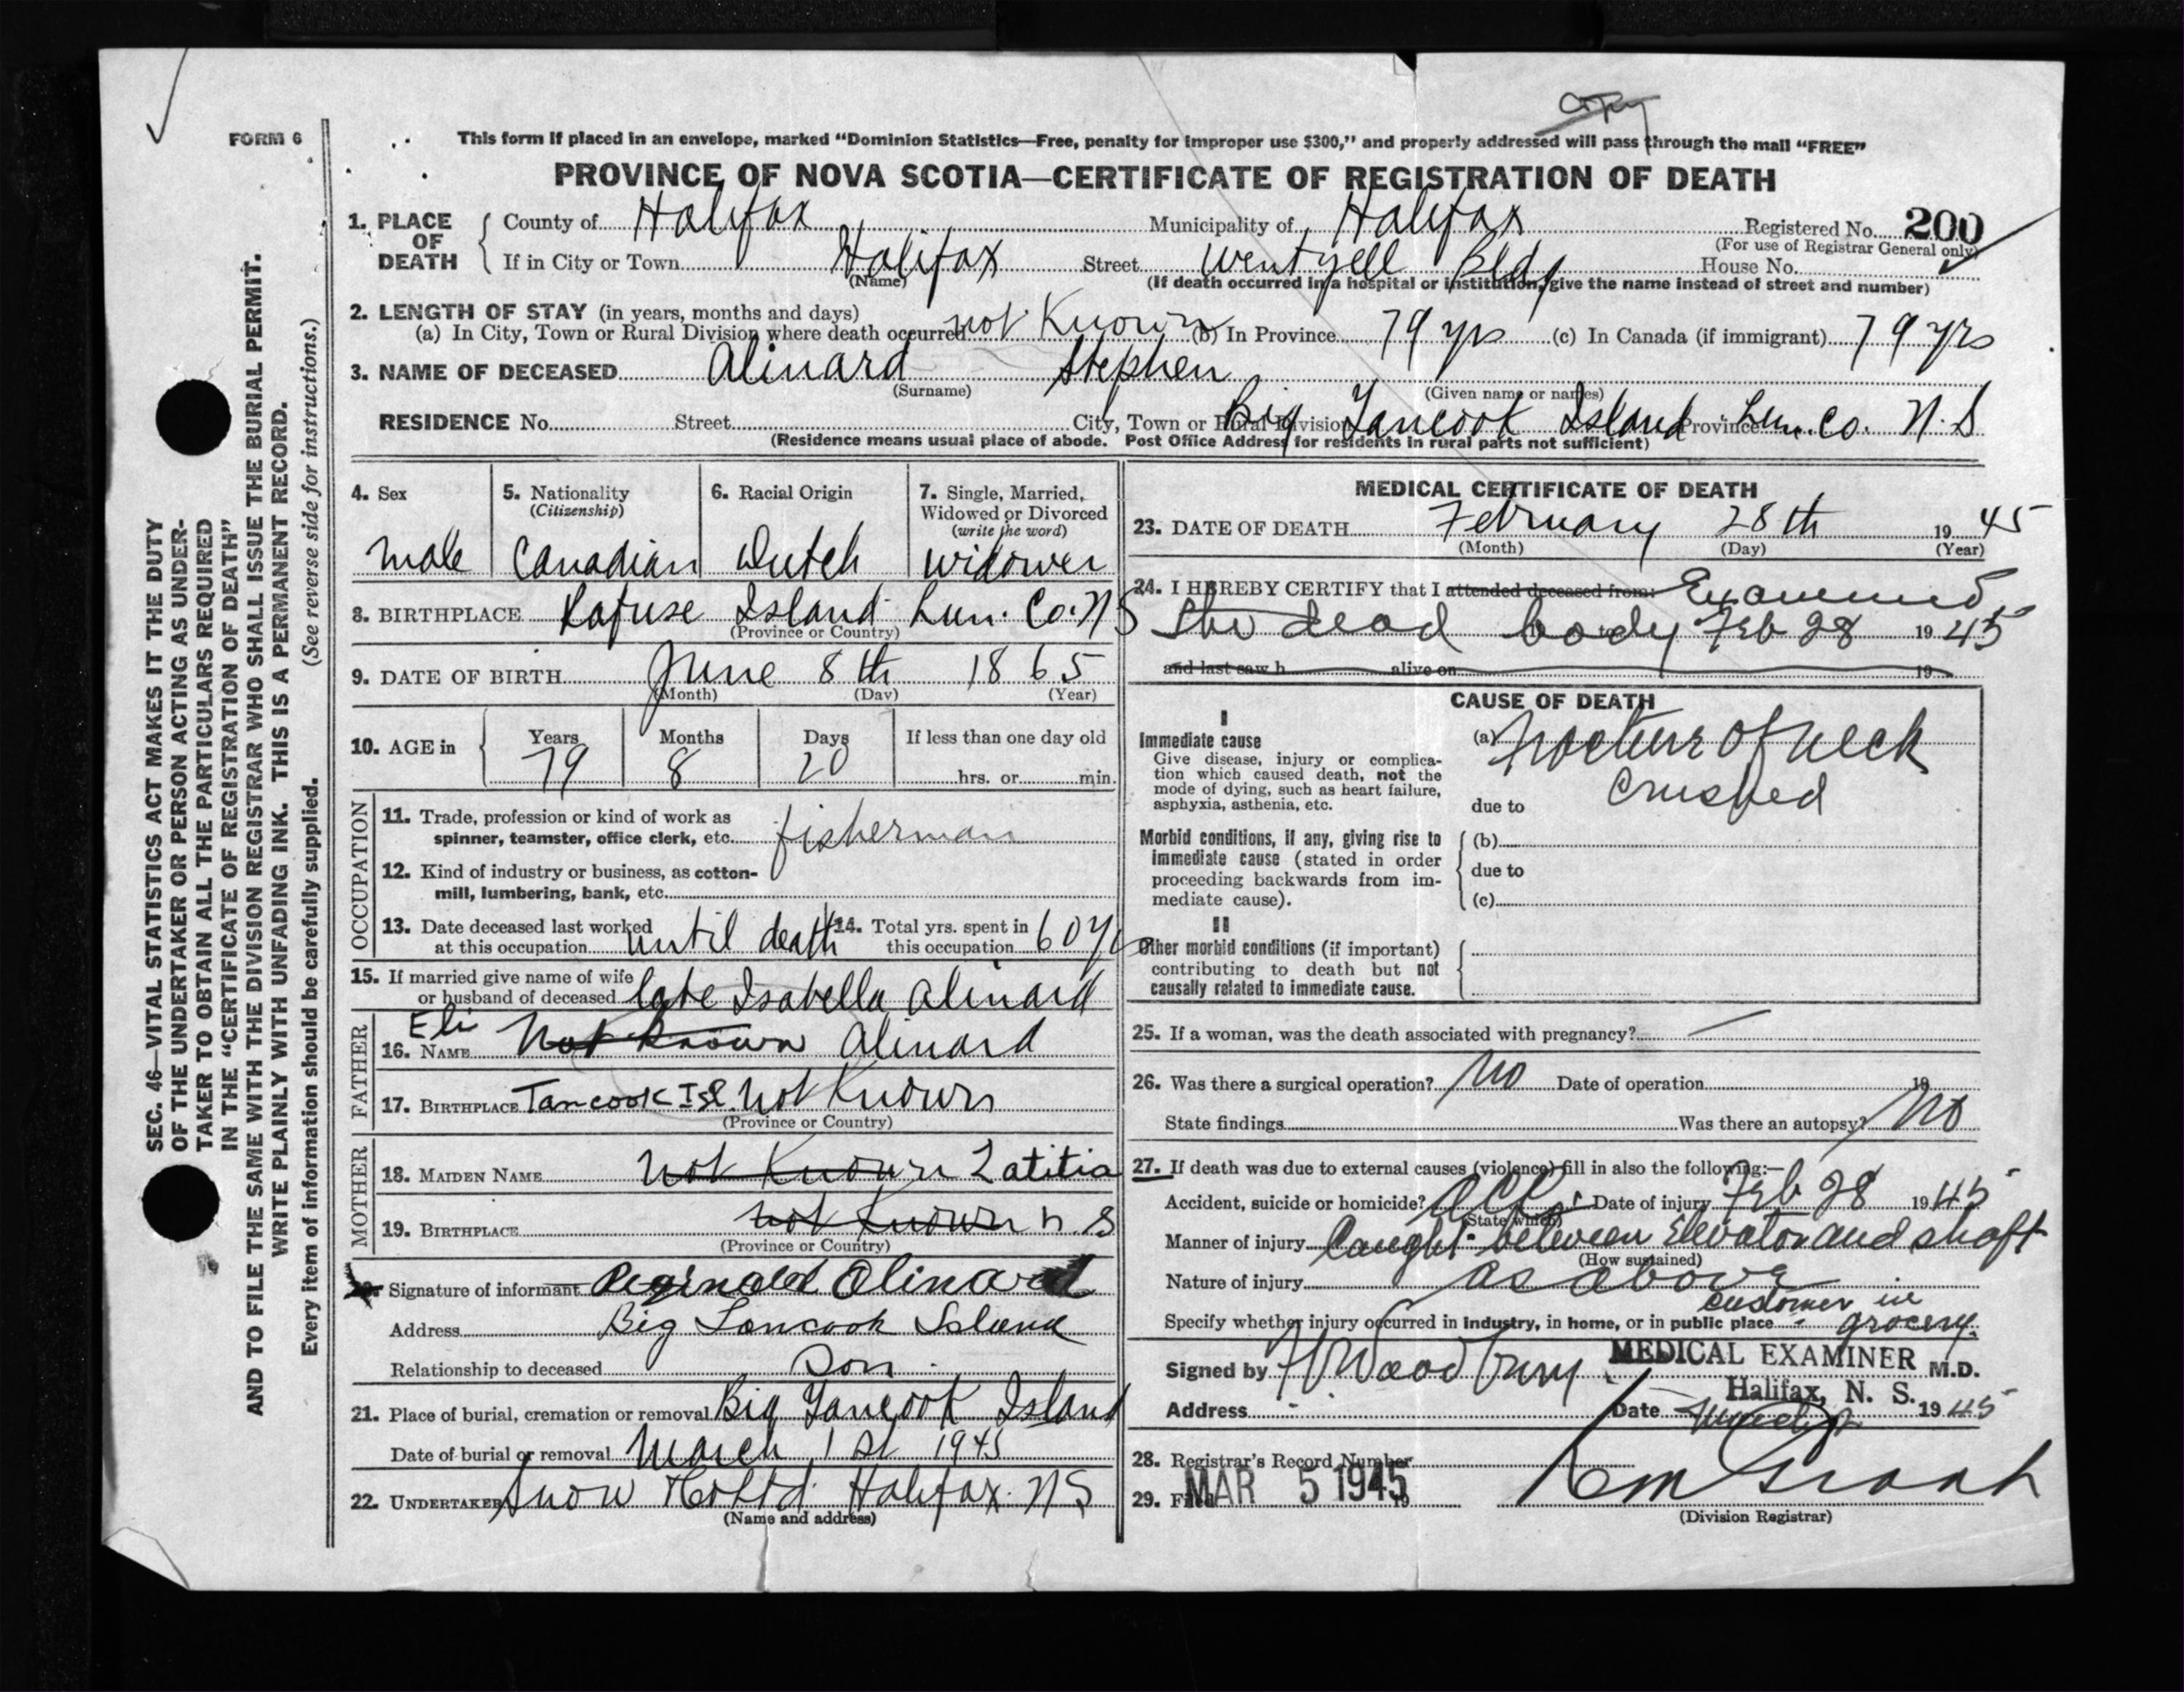 Copy
FORM 6
This form if placed in an envelope, marked “Dominion Statistics—Free, penalty for improper use $300,” and properly addressed will pass through the mail “FREE”
PROVINCE OF NOVA SCOTIA—CERTIFICATE OF REGISTRATION OF DEATH
1. PLACE OF DEATH
County of Halifax Municipality of Halifax Registered No. 200
(For use of Registrar General only)
If in City or Town Halifax Street Wentzell Bldg House No.
(Name) (If death occurred in a hospital or institution, give the name instead of street and number)
2. LENGTH OF STAY (in years, months and days)
(a) In City, Town or Rural Division where death occurred not Known (b) In Province 79 yrs (c) In Canada (if immigrant) 79 yrs
3. NAME OF DECEASED Alinard Stephen
(Surname) (Given name or names)
RESIDENCE No. Street City, Town or Rural Division Big Tancook Island Province Lun. Co. N.S
(Residence means usual place of abode. Post Office Address for residents in rural parts not sufficient)
SEC. 46—VITAL STATISTICS ACT MAKES IT THE DUTY
OF THE UNDERTAKER OR PERSON ACTING AS UNDER-
TAKER TO OBTAIN ALL THE PARTICULARS REQUIRED
IN THE “CERTIFICATE OF REGISTRATION OF DEATH”
AND TO FILE THE SAME WITH THE DIVISION REGISTRAR WHO SHALL ISSUE THE BURIAL PERMIT.
WRITE PLAINLY WITH UNFADING INK. THIS IS A PERMANENT RECORD.
Every item of information should be carefully supplied. (See reverse side for instructions.)
4. Sex
male
5. Nationality
(Citizenship)
Canadian
6. Racial Origin
Dutch
7. Single, Married,
Widowed or Divorced
(write the word)
widower
8. BIRTHPLACE Rafuse Island Lun. Co. NS
(Province or Country)
9. DATE OF BIRTH June 8th 1865
(Month) (Day) (Year)
10. AGE in
Years Months Days If less than one day old
79 8 20 hrs. or min.
OCCUPATION
11. Trade, profession or kind of work as
spinner, teamster, office clerk, etc. fisherman
12. Kind of industry or business, as cotton-
mill, lumbering, bank, etc.
13. Date deceased last worked
at this occupation until death
14. Total yrs. spent in
this occupation 60 yrs
15. If married give name of wife
or husband of deceased late Isabella Alinard
FATHER
Eli
16. NAME not Known Alinard
17. BIRTHPLACE Tancook Isl. not Known
(Province or Country)
MOTHER
18. MAIDEN NAME not Known Latitia
19. BIRTHPLACE not Known N.S
(Province or Country)
20. Signature of informant Reginald Alinard
Address Big Tancook Island
Relationship to deceased Son
21. Place of burial, cremation or removal Big Tancook Island
Date of burial or removal March 1st 1945
22. UNDERTAKER Snow & Co Ltd. Halifax. NS
(Name and address)
MEDICAL CERTIFICATE OF DEATH
23. DATE OF DEATH February 28th 1945
(Month) (Day) (Year)
24. I HEREBY CERTIFY that I attended deceased from: Examined
the dead body Feb 28 1945
and last saw h alive on 19
CAUSE OF DEATH
I
Immediate cause
Give disease, injury or complica-
tion which caused death, not the
mode of dying, such as heart failure,
asphyxia, asthenia, etc.
(a) Fracture of neck
due to crushed
Morbid conditions, if any, giving rise to
immediate cause (stated in order
proceeding backwards from im-
mediate cause).
(b)
due to
(c)
II
Other morbid conditions (if important)
contributing to death but not
causally related to immediate cause.
25. If a woman, was the death associated with pregnancy? —
26. Was there a surgical operation? No Date of operation 19
State findings Was there an autopsy? No
27. If death was due to external causes (violence) fill in also the following:—
Accident, suicide or homicide? Acc. Date of injury Feb 28 1945
(State which)
Manner of injury Caught between Elevator and shaft
(How sustained)
Nature of injury as above
customer in
Specify whether injury occurred in industry, in home, or in public place grocery.
Signed by Woodbury MEDICAL EXAMINER M.D.
Halifax, N. S.
Address Date 1945
28. Registrar's Record Number
29. Filed MAR 5 1945 19
(Division Registrar)